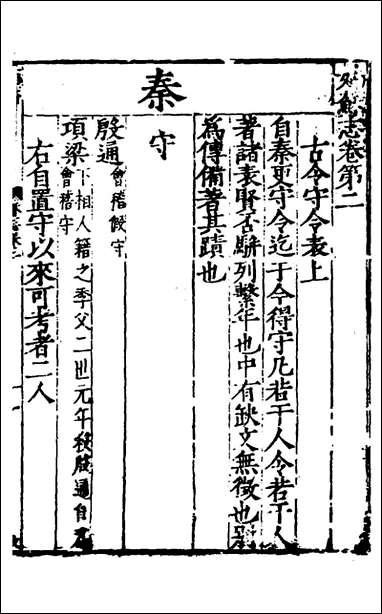 志卷第二
古今守令表上
自秦更守令迄于今得守凡若干人令若干人
著諸表賢否駢列繫年也中有缺文無徵也別
為傳備著其蹟也
秦
守
殷通會稽假守
項梁下相人籍之季父二世元年殺殷通自
會稽守
右自置守以來可考者二人